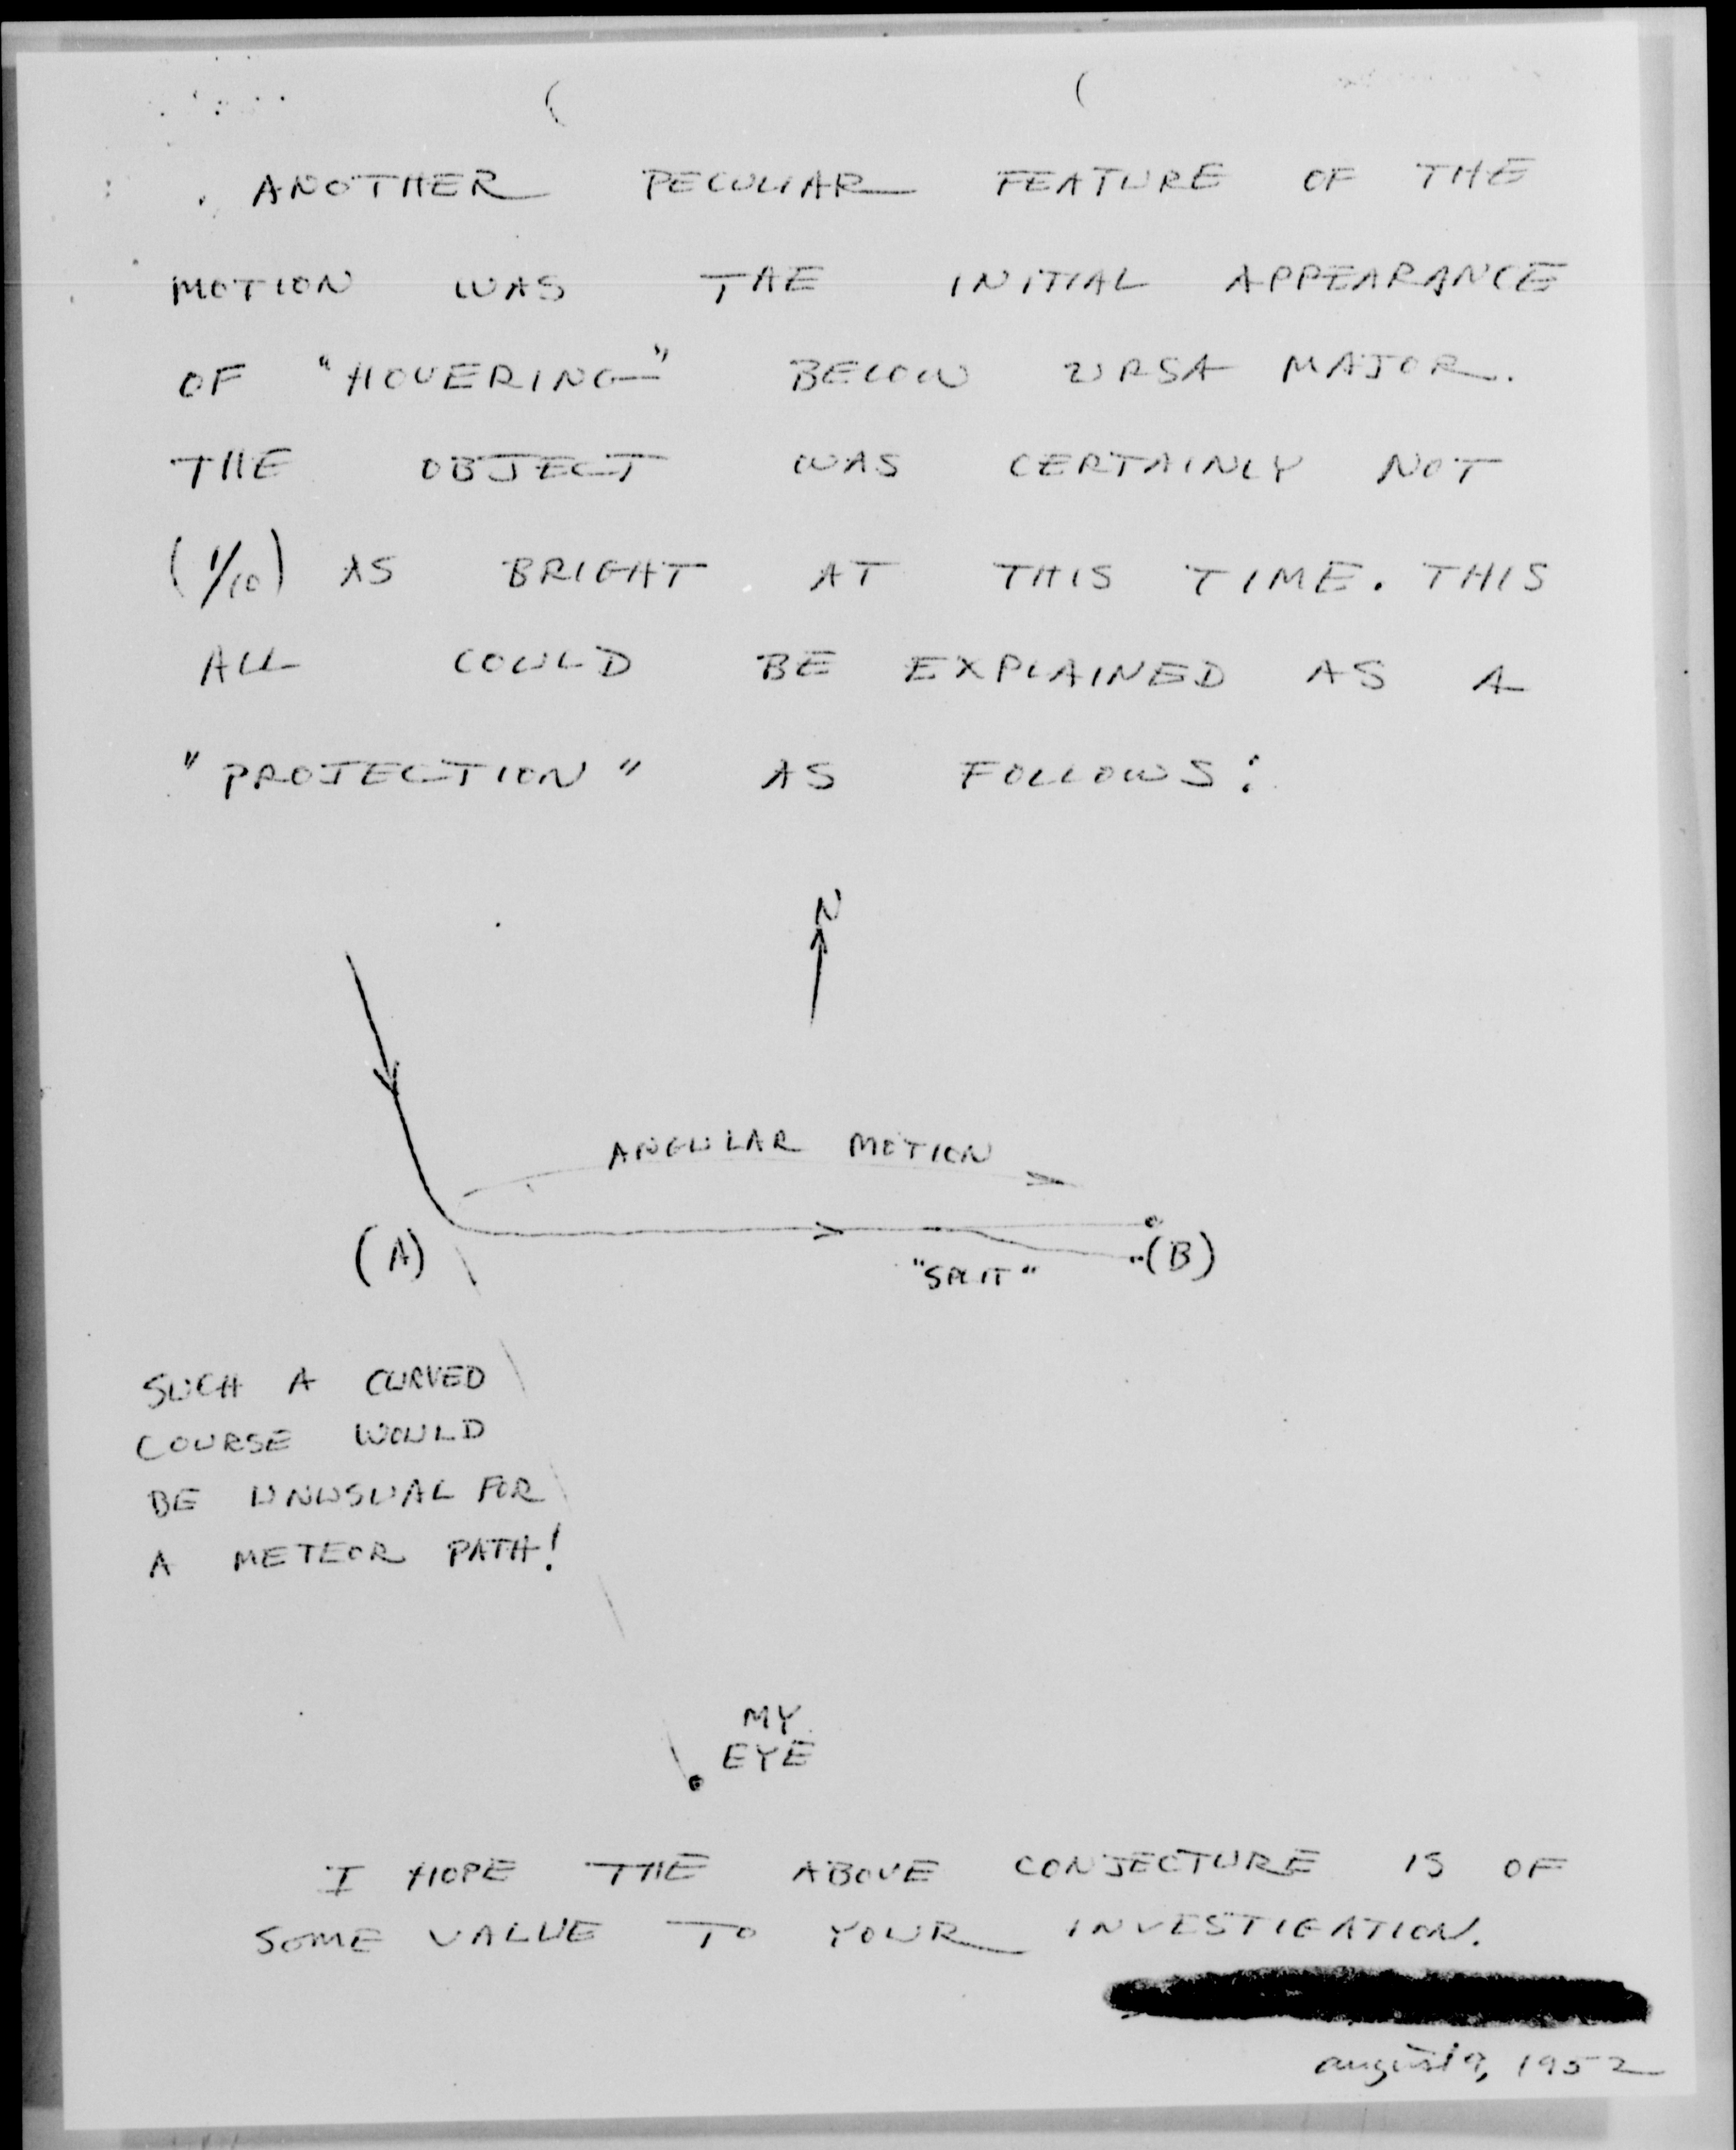 ANOTHER PECULIAR FEATURE OF THE
MOTION WAS THE INITIAL APPEARANCE
OF "HOVERING" BELOW URSA MAJOR.
THE OBJECT WAS CERTAINLY NOT
(1/10) AS BRIGHT AT THIS TIME. THIS
ALL COULD BE EXPLAINED AS A
"PROJECTION" AS FOLLOWS:
N
ANGULAR MOTION
(A)
(B)
"SPLIT"
SUCH A CURVED
COURSE WOULD
BE UNUSUAL FOR
A METEOR PATH!
MY
EYE
I HOPE THE ABOVE CONJECTURE IS OF
SOME VALUE TO YOUR INVESTIGATION.
august 9, 1952